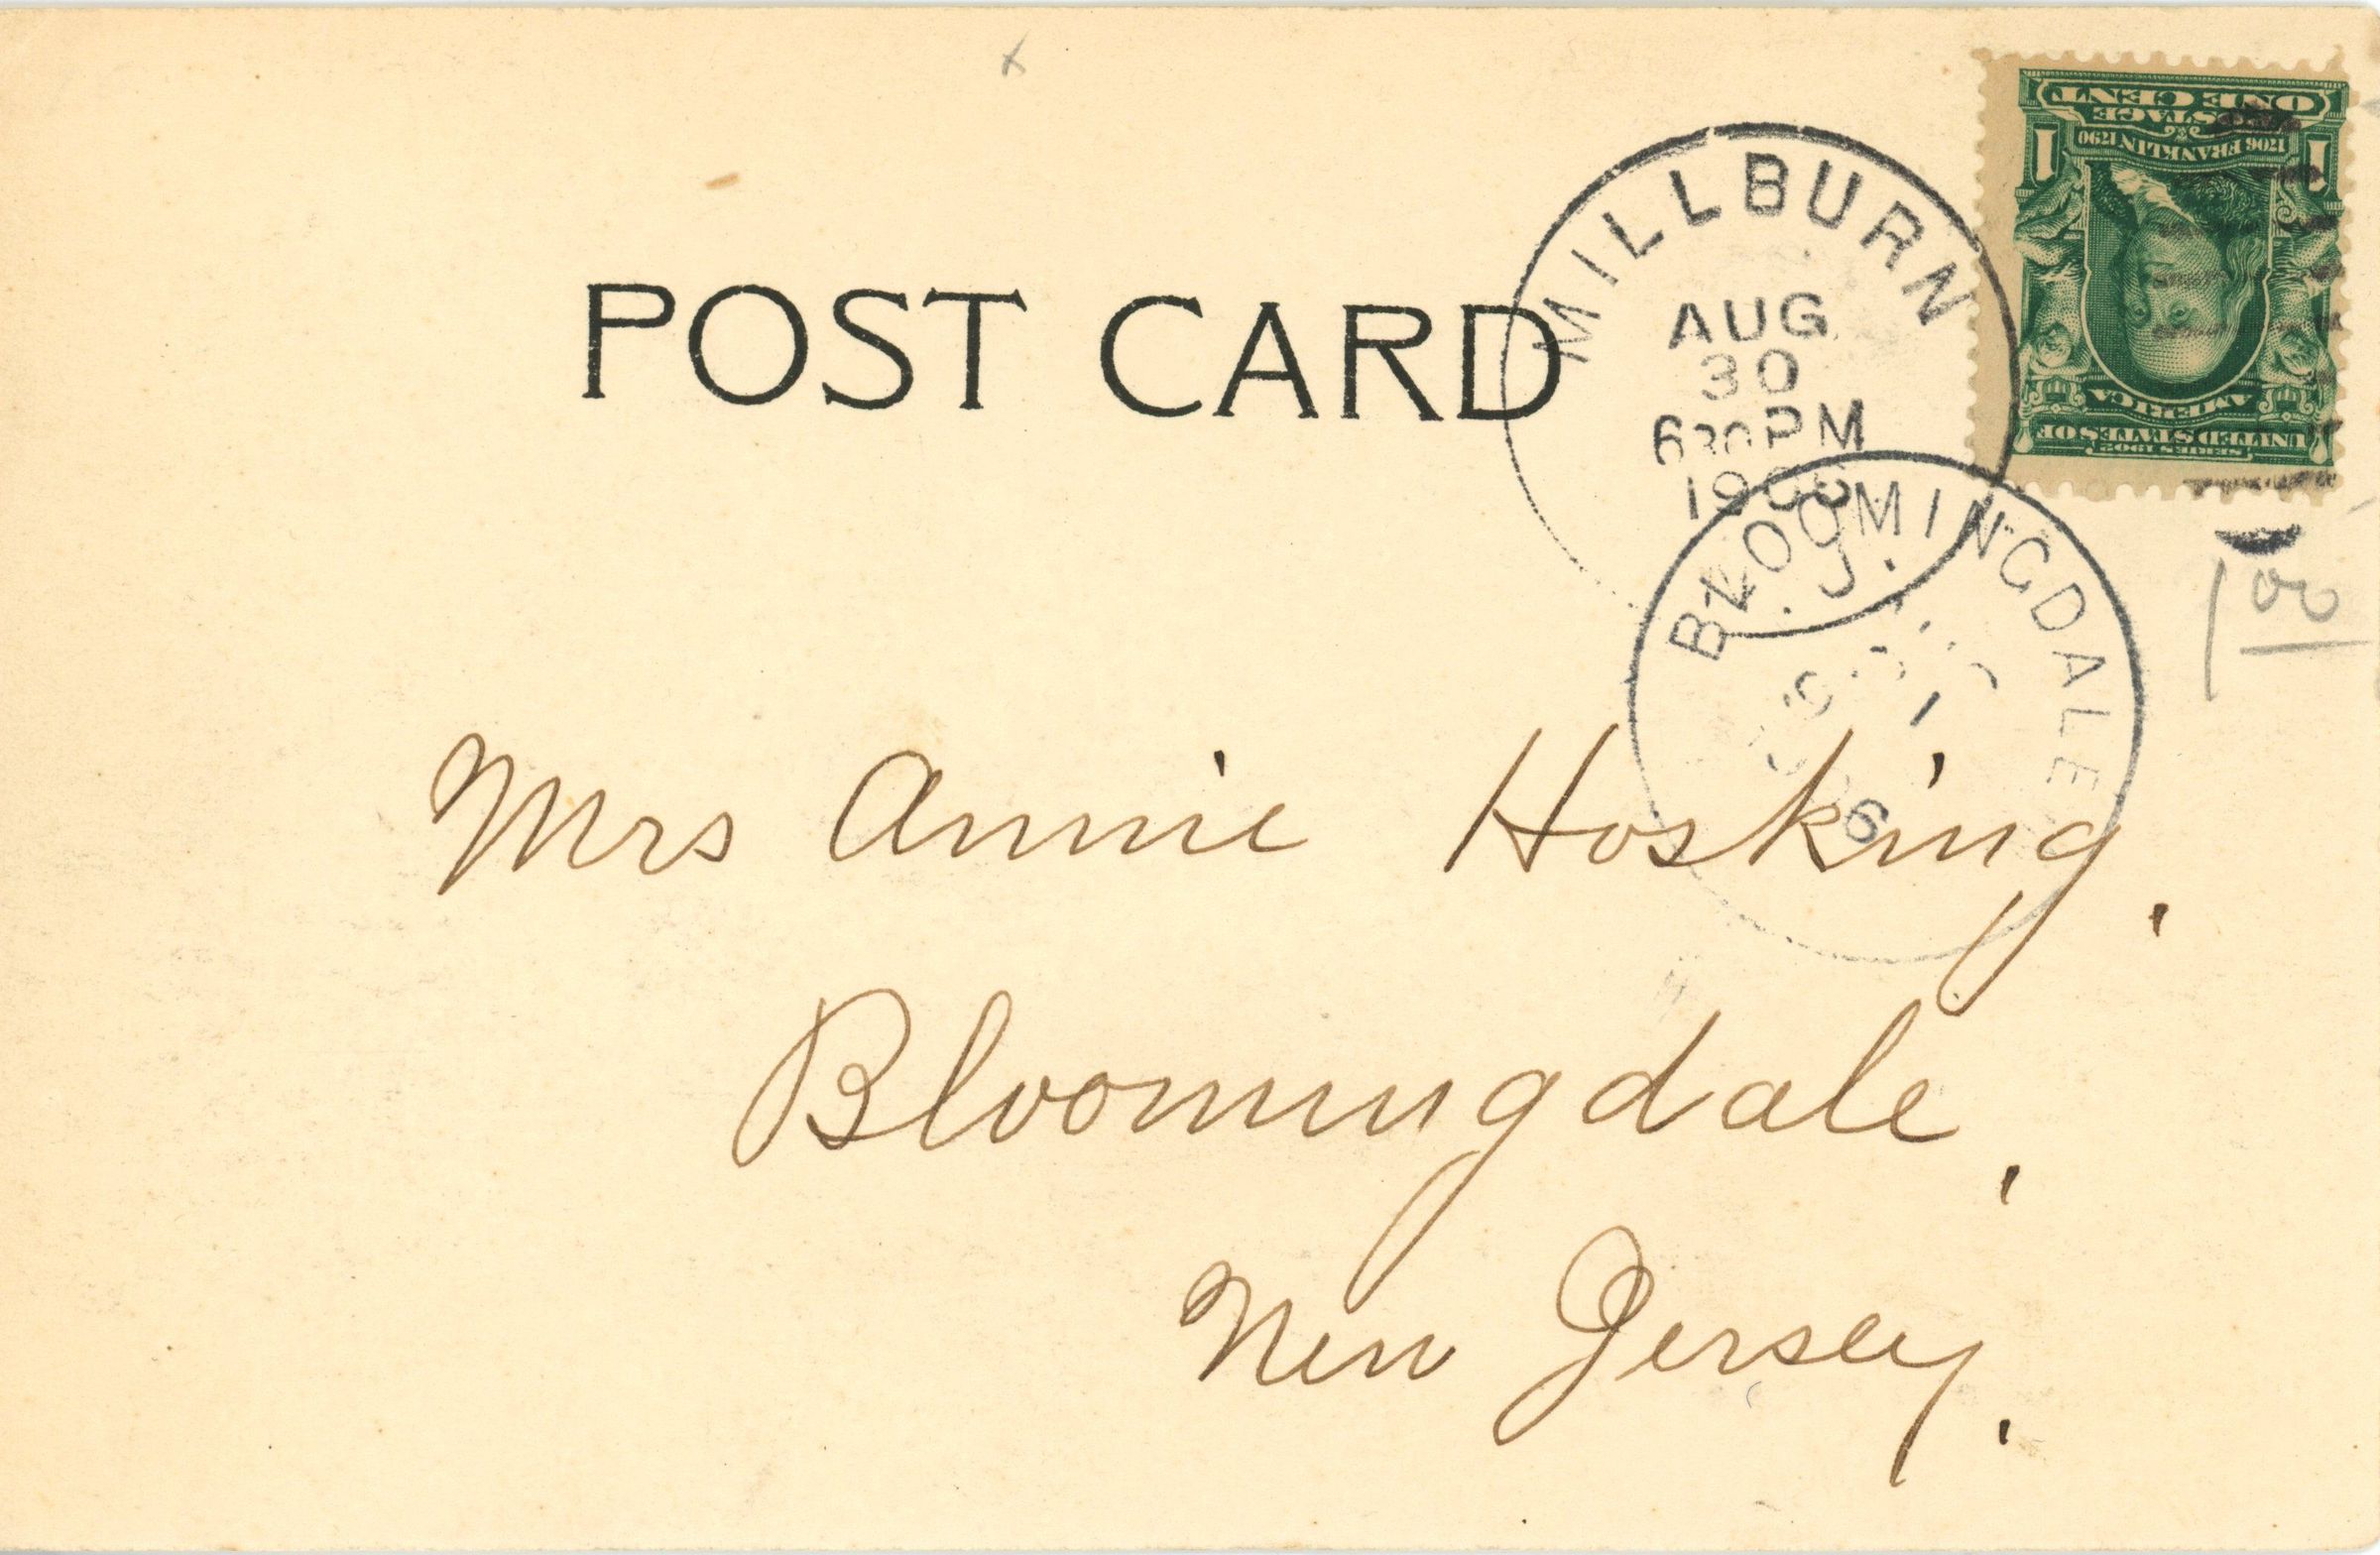 POST CARD
MILLBURN
AUG
30
630PM
1906
N.J.
BLOOMINGDALE
1
6
ONE CENT
POSTAGE
1 1706 FRANKLIN 1790 1
UNITED STATES OF
AMERICA
SERIES 1902
1 00
Mrs Annie Hosking.
Bloomingdale,
New Jersey.